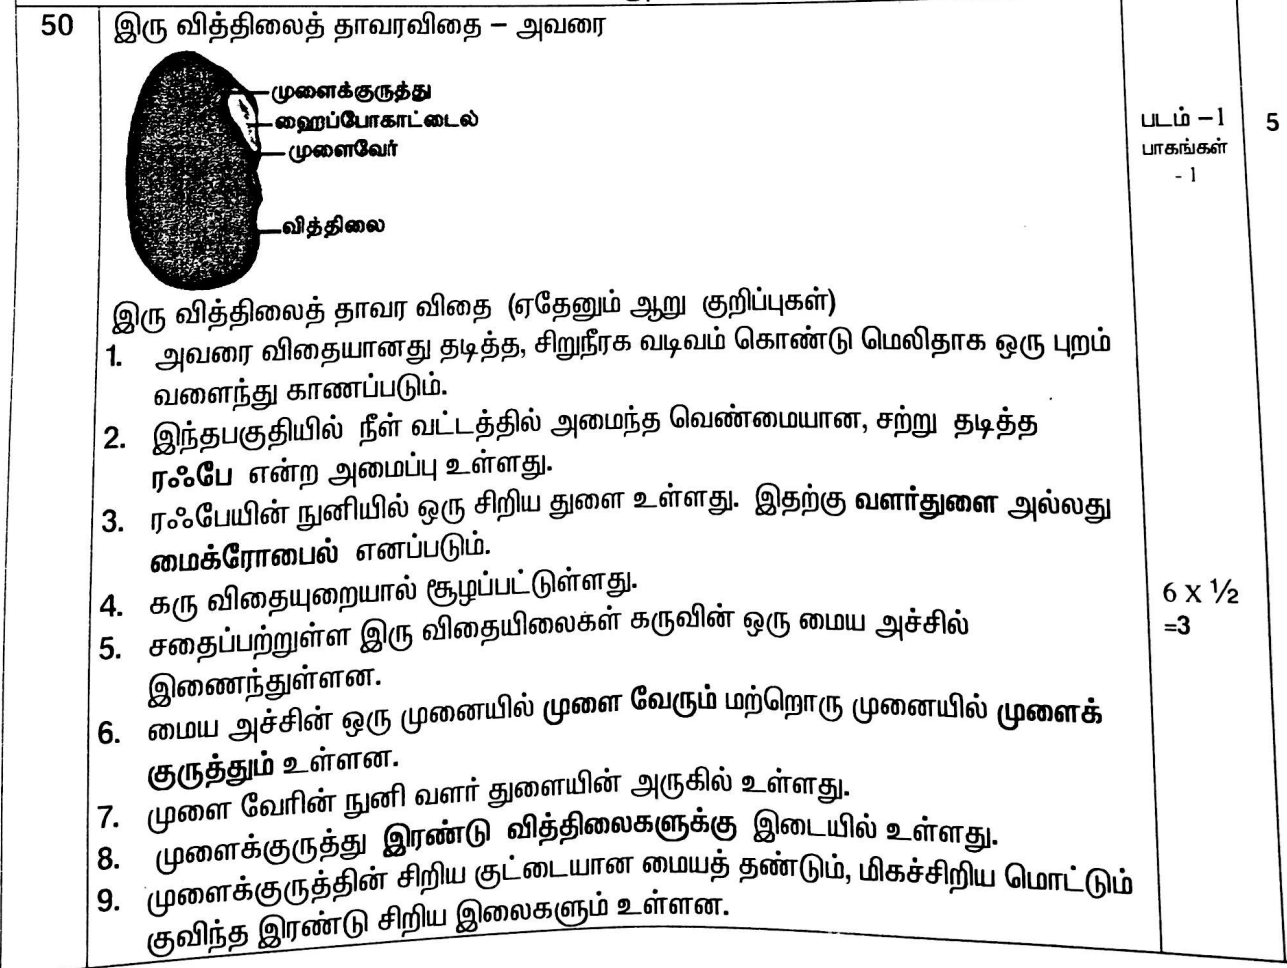 50 இரு வித்திலைத் தாவரவிதை – அவரை
முளைக்குருத்து
ஹைப்போகாட்டைல்
முளைவேர்
வித்திலை
படம் –1 5
பாகங்கள்
- 1
இரு வித்திலைத் தாவர விதை (ஏதேனும் ஆறு குறிப்புகள்)
1. அவரை விதையானது தடித்த, சிறுநீரக வடிவம் கொண்டு மெலிதாக ஒரு புறம்
வளைந்து காணப்படும்.
2. இந்தபகுதியில் நீள் வட்டத்தில் அமைந்த வெண்மையான, சற்று தடித்த
ரஃபே என்ற அமைப்பு உள்ளது.
3. ரஃபேயின் நுனியில் ஒரு சிறிய துளை உள்ளது. இதற்கு வளர்துளை அல்லது
மைக்ரோபைல் எனப்படும்.
4. கரு விதையுறையால் சூழப்பட்டுள்ளது.
5. சதைப்பற்றுள்ள இரு விதையிலைகள் கருவின் ஒரு மைய அச்சில்
இணைந்துள்ளன.
6. மைய அச்சின் ஒரு முனையில் முளை வேரும் மற்றொரு முனையில் முளைக்
குருத்தும் உள்ளன.
7. முளை வேரின் நுனி வளர் துளையின் அருகில் உள்ளது.
8. முளைக்குருத்து இரண்டு வித்திலைகளுக்கு இடையில் உள்ளது.
9. முளைக்குருத்தின் சிறிய குட்டையான மையத் தண்டும், மிகச்சிறிய மொட்டும்
குவிந்த இரண்டு சிறிய இலைகளும் உள்ளன.
6 X ½
=3